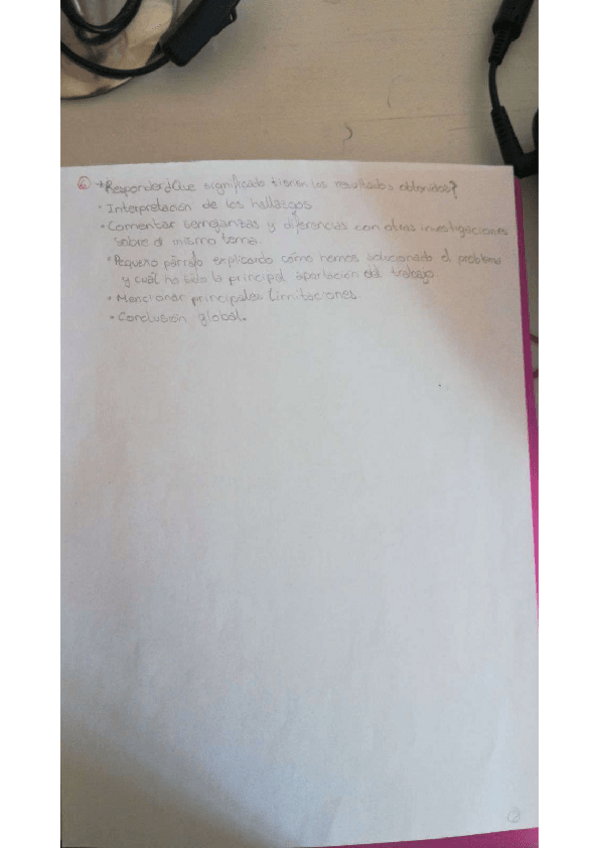 ⑥ → Responder ¿Que significado tienen los resultados obtenidos?
• Interpretación de los hallazgos
• Comentar semejanzas y diferencias con otras investigaciones
sobre el mismo tema.
• Pequeño párrafo explicando cómo hemos solucionado el problema
y cuál ha sido la principal aportación del trabajo
• Mencionar principales limitaciones.
• Conclusión global.